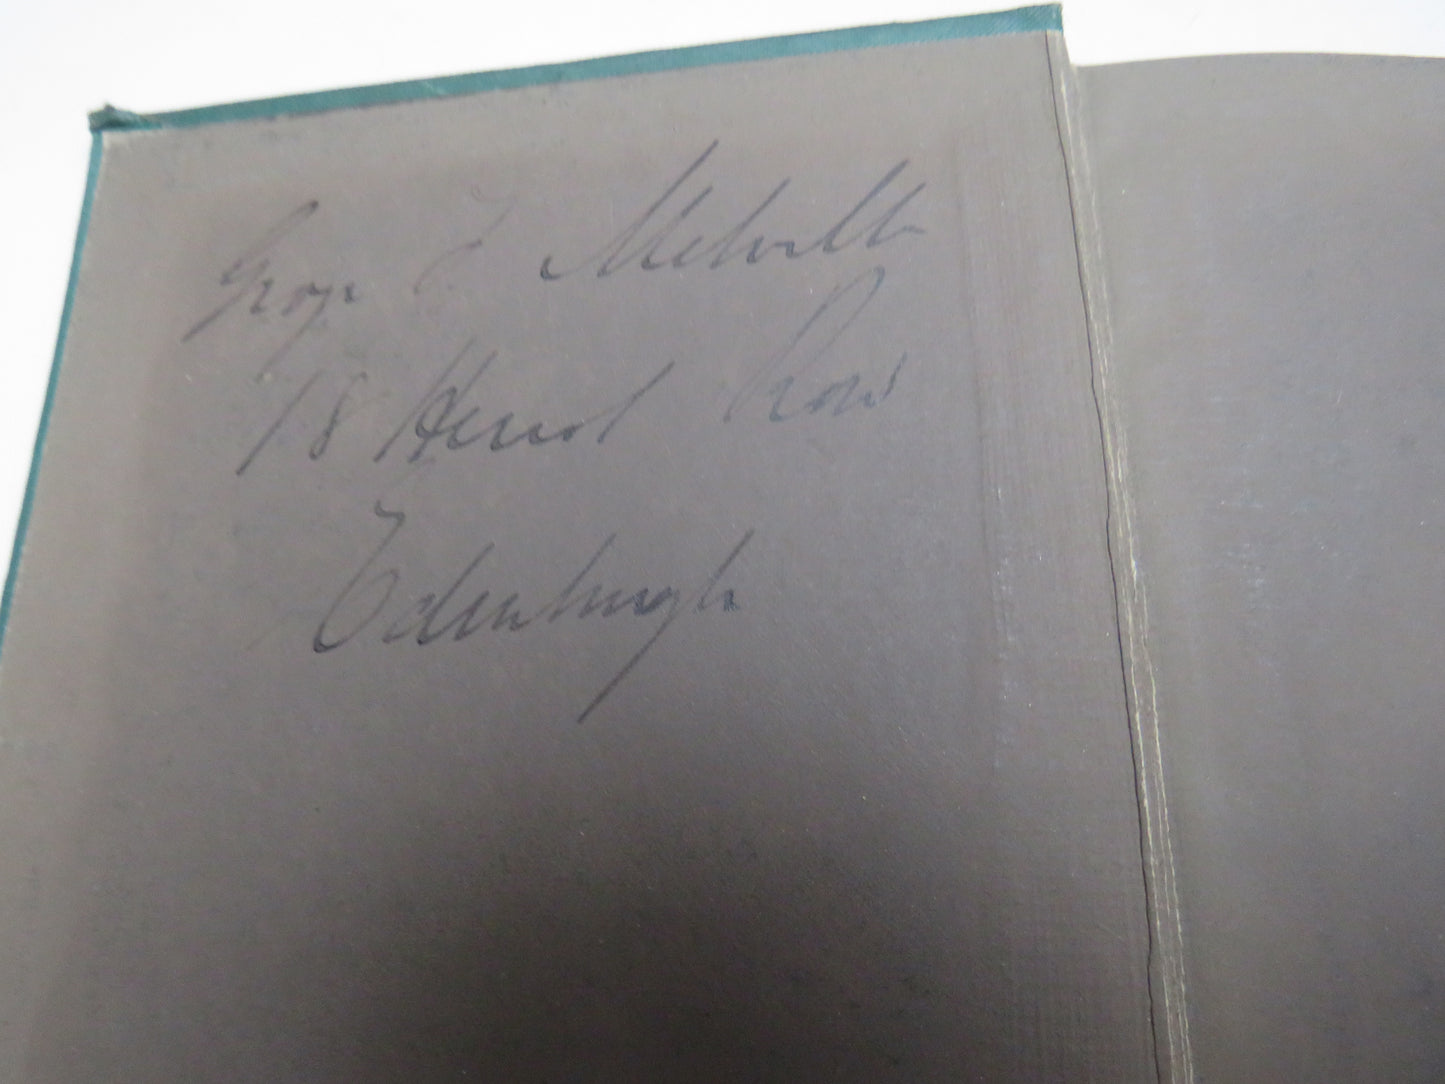 George F Melville
18 Heriot Row
Edenburgh